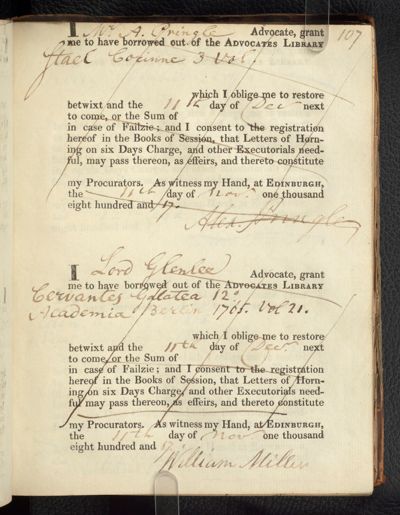 107
I Mr. A. Pringle Advocate, grant
me to have borrowed out of the ADVOCATES LIBRARY
Stael Corinne 3 Vol.
which I oblige me to restore
betwixt and the 11th day of Decr next
to come, or the Sum of
in case of Failzie; and I consent to the registration
hereof in the Books of Session, that Letters of Horn-
ing on six Days Charge, and other Executorials need-
ful, may pass thereon, as effeirs, and thereto constitute
my Procurators. As witness my Hand, at EDINBURGH,
the 11th day of Novr. one thousand
eight hundred and 17.
Alex. Pringle
I Lord Glenlee Advocate, grant
me to have borrowed out of the ADVOCATES LIBRARY
Cervantes Galatea 12o
Academia Berlin 1765. Vol 21.
which I oblige me to restore
betwixt and the 11th day of Decr next
to come, or the Sum of
in case of Failzie; and I consent to the registration
hereof in the Books of Session, that Letters of Horn-
ing on six Days Charge, and other Executorials need-
ful may pass thereon, as effeirs, and thereto constitute
my Procurators. As witness my Hand, at EDINBURGH,
the 11th day of Novr one thousand
eight hundred and
William Miller